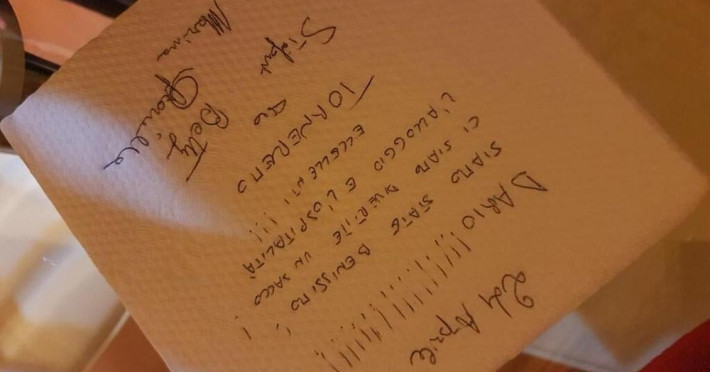 24 Aprile
DARIO!!!!!!!!!!!!
SIAMO STATE BENISSIMO
CI SIAMO DIVERTITE UN SACCO!
L'ALLOGGIO E L'OSPITALITÀ
ECCELLENTI!!!
TORNEREMO
Betty
Marinna